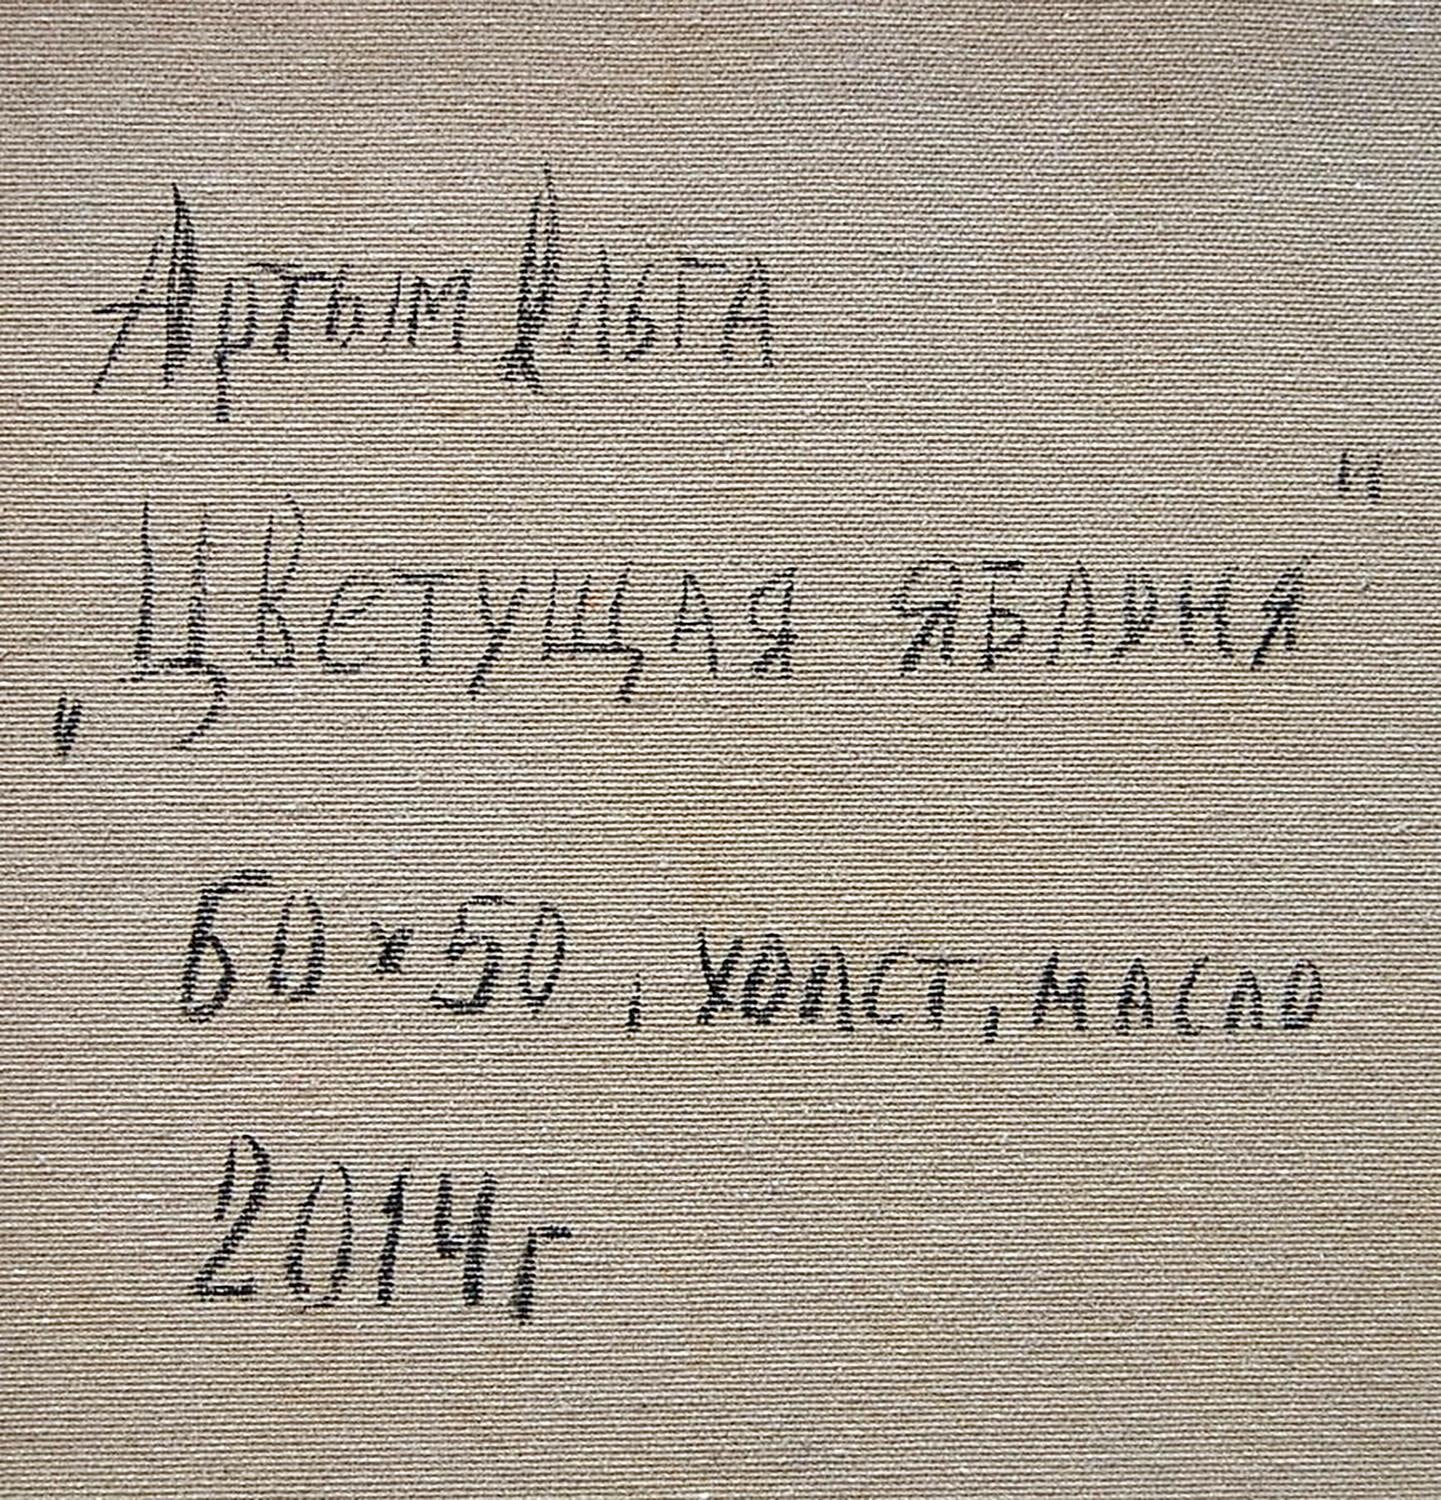 Артым Ольга
„Цветущая яблоня"
60×50, холст, масло
2014г